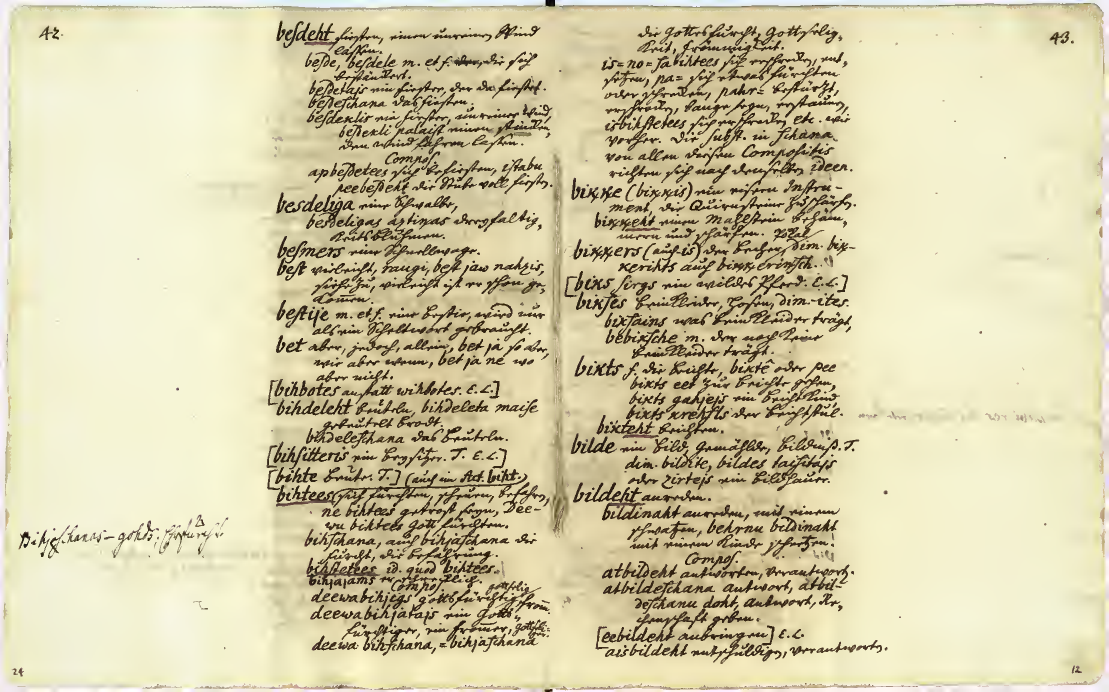 42.
besdeht fiesten, einen unreinen Wind
lassen.
besde, besdele m. et f. der, die sich
besdetajs ein fiester, der da fiestet.
besdeschana das fiesten.
besdeklis ein fiester, unreiner Wind
besdekli palaist einen
den Wind fahren lassen.
Compos
apbesdetees sich befiesten, istabu
peebesdeht die Stube voll fiesten.
besdeliga eine Schwalbe,
besdeligas aztinas dreyfaltig-
keitsbluhmen.
besmers eine Schnellwage.
best vieleicht, raugi, best jaw nahzis,
siehe zu, vieleicht ist er schon ge-
kommen.
bestije m. et f. eine bestie, wird nur
als ein Scheltwort gebraucht.
bet aber, jedoch, allein, bet ja so aber,
wie aber wenn, bet ja ne wo
aber nicht.
[bihbotes anstatt wihbotes. E. L.]
bihdeleht beuteln, bihdeleta maise
gebeutelt brodt.
bihdeleschana das beuteln.
[bihsitteris ein beysitzer. T. E. L.]
[bihte beute. T.] (auch im Act. biht.)
bihtees sich fürchten, scheuen, befahren,
ne bihtees getrost seyn, Dee-
wu bihtees Gott fürchten.
bihschana, auch bihjaschana die
furcht, die befahrung.
bihstetees id. quod bihtees.
bihjajams erschrecklich.
Compos
deewabihjegs gottsfürchtig, from
gottselig
deewabihjatajs ein Gotts-
fürchtiger, ein fromer,
deewa bihschana, = bihjaschana
24
43.
die Gottesfurcht, Gottselig-
keit, Frömmigkeit.
is= no= sabihtees sich erschrecken, ent-
setzen, pa= sich etwas fürchten
oder schrecken, pahr= bestürzt,
erschrecken, bange seyn, erstaunen,
isbihstetees sich erschrecken etc. wie
vorher. Die subst. in schana
von allen diesen Compositis
richten sich nach denselben ideen.
bikke (bikkis) ein eisern Instru-
ment, die Quirnsteine zu schärfen.
bikkeht einen Mahlstein behäm-
mern und schärfen.
bikkers (auch -is) der becher, dim. bik-
kerihts auch bikkerinsch.
[biks sirgs ein wildes Pferd. E. L.]
bikses beinkleider, hosen, dim. -ites.
biksains was beinkleider trägt,
bebiksche m. der noch keine
beinkleider trägt.
bikts f. die beichte, bikte oder pee
bikts eet zur beichte gehen,
bikts gahjejs ein beichtkind
bikts krehsls der beichtstul.
bikteht beichten.
bilde ein bild, gemählde, bildniß. T.
dim. bildite, bildes taisitajs
oder zirtejs ein bildhauer.
bildeht anreden.
bildinaht anreden, mit einem
schwatzen, behrnu bildinaht
mit einem Kinde scherzen.
Compos.
atbildeht antworten, verantworten.
atbildeschana antwort, atbil-
deschanu doht, antwort, Re-
chenschaft geben.
[eebildeht anbringen] E. L.
aisbildeht entschuldigen, verantworten.
12